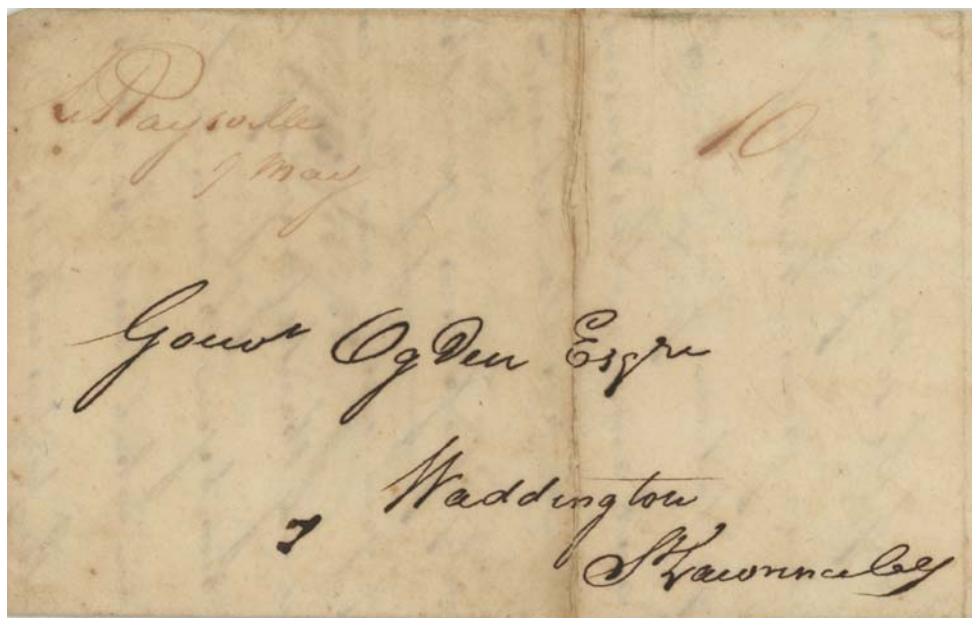 LeRaysville
7 May
10
Gouvr Ogden Esqre
Waddington
St Lawrence Cy